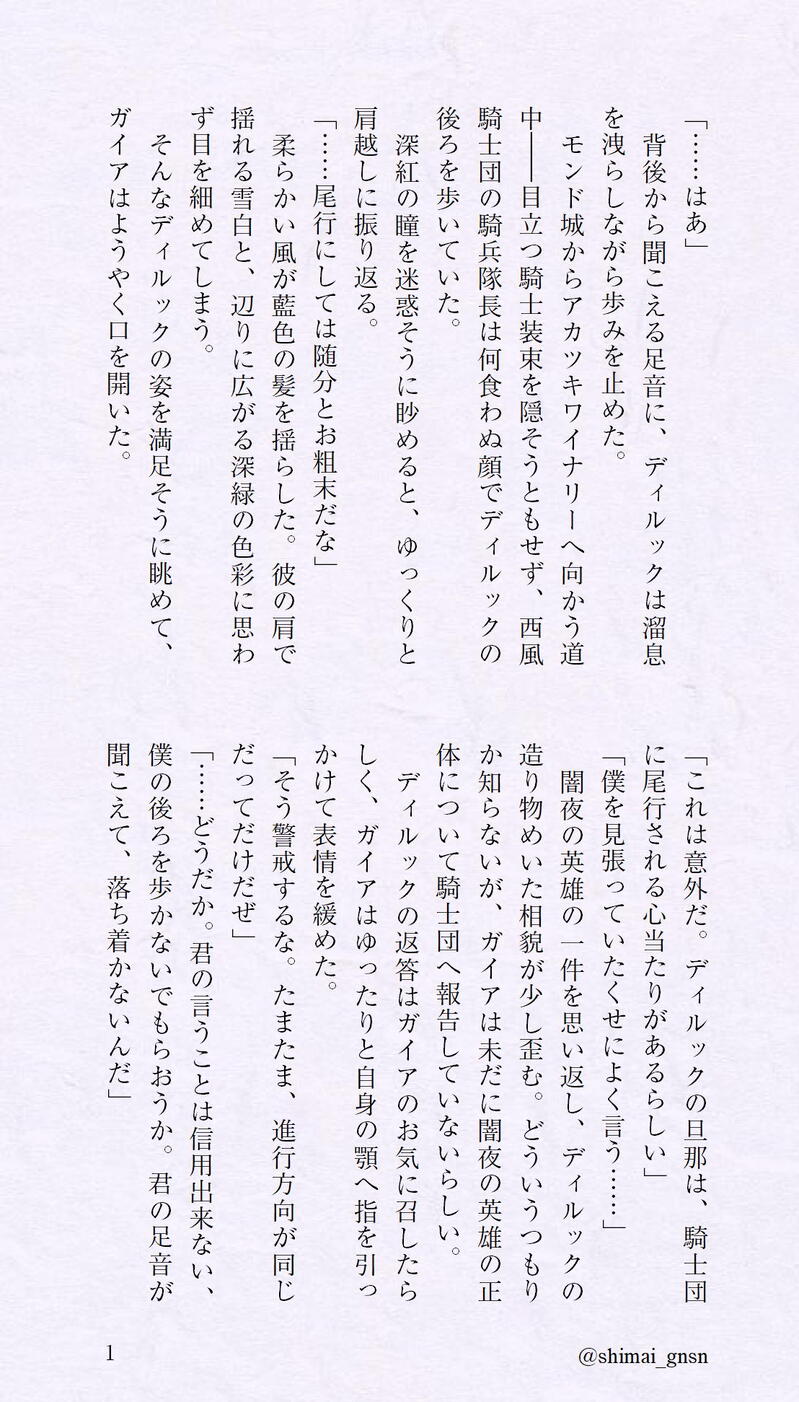 「……はあ」
　背後から聞こえる足音に、ディルックは溜息
を洩らしながら歩みを止めた。
　モンド城からアカツキワイナリーへ向かう道
中――目立つ騎士装束を隠そうともせず、西風
騎士団の騎兵隊長は何食わぬ顔でディルックの
後ろを歩いていた。
　深紅の瞳を迷惑そうに眇めると、ゆっくりと
肩越しに振り返る。
「……尾行にしては随分とお粗末だな」
　柔らかい風が藍色の髪を揺らした。彼の肩で
揺れる雪白と、辺りに広がる深緑の色彩に思わ
ず目を細めてしまう。
　そんなディルックの姿を満足そうに眺めて、
ガイアはようやく口を開いた。
「これは意外だ。ディルックの旦那は、騎士団
に尾行される心当たりがあるらしい」
「僕を見張っていたくせによく言う……」
　闇夜の英雄の一件を思い返し、ディルックの
造り物めいた相貌が少し歪む。どういうつもり
か知らないが、ガイアは未だに闇夜の英雄の正
体について騎士団へ報告していないらしい。
　ディルックの返答はガイアのお気に召したら
しく、ガイアはゆったりと自身の顎へ指を引っ
かけて表情を緩めた。
「そう警戒するな。たまたま、進行方向が同じ
だってだけだぜ」
「……どうだか。君の言うことは信用出来ない、
僕の後ろを歩かないでもらおうか。君の足音が
聞こえて、落ち着かないんだ」
1
@shimai_gnsn